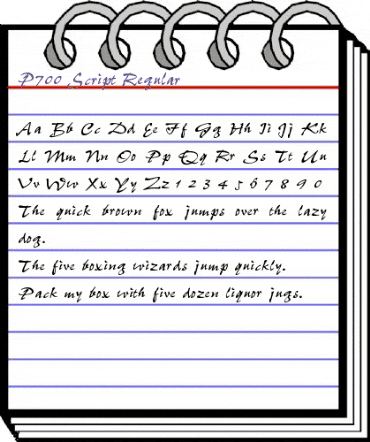 P700 Script Regular
Aa Bb Cc Dd Ee Ff Gg Hh Ii Jj Kk
Ll Mm Nn Oo Pp Qq Rr Ss Tt Uu
Vv Ww Xx Yy Zz 1 2 3 4 5 6 7 8 9 0
The quick brown fox jumps over the lazy
dog.
The five boxing wizards jump quickly.
Pack my box with five dozen liquor jugs.